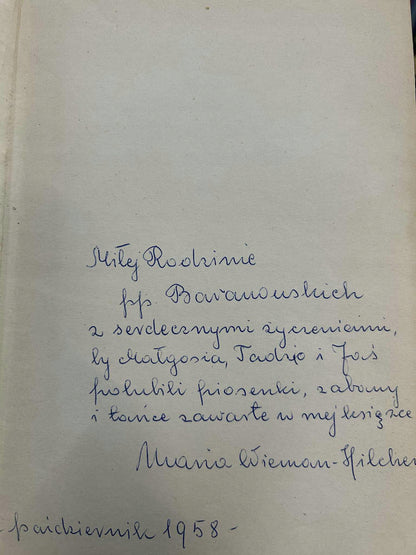 Miłej Rodzinie
pp. Baranowskich
z serdecznymi życzeniami,
by Małgosia, Tadzio i Jaś
polubili piosenki, zabawy
i tańce zawarte w mej książce
Maria Wieman-Hilcher
- październik 1958 -